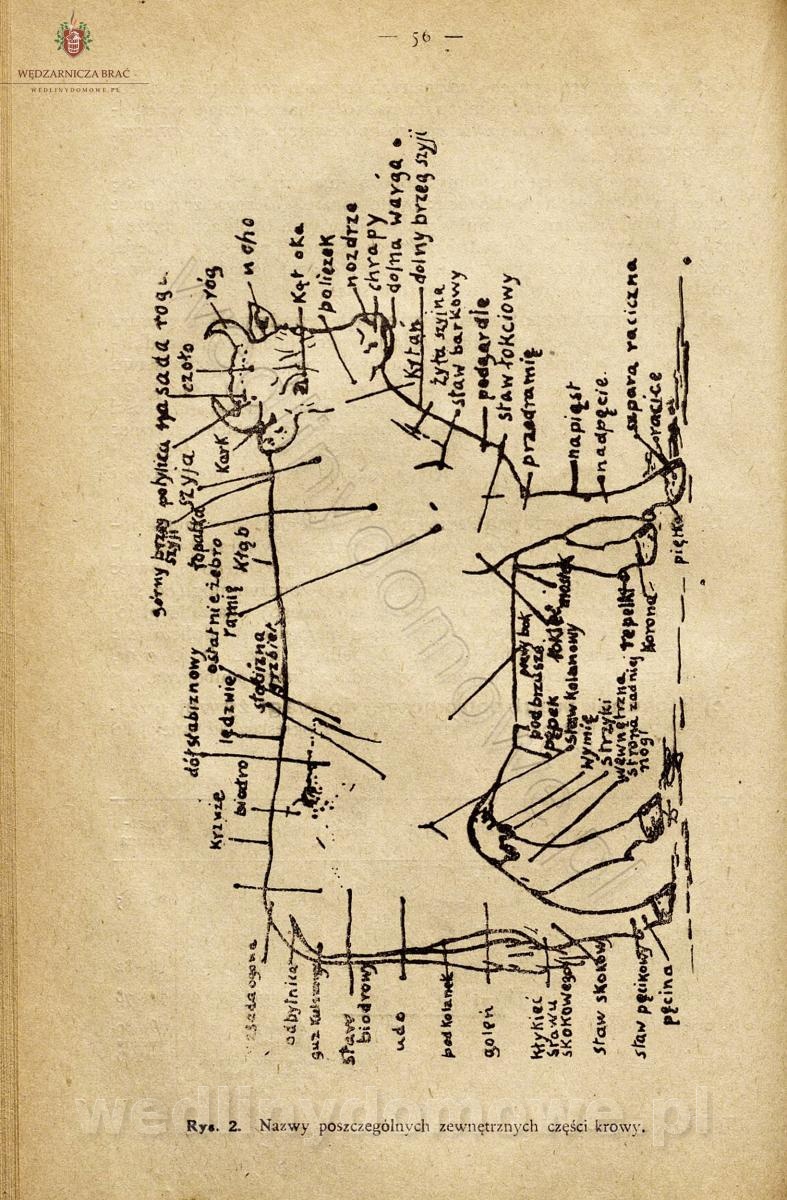 — 56 —
WĘDZARNICZA BRAĆ
WEDLINYDOMOWE.PL
górny brzeg szyji
potylica
nasada rogu
czoło
róg
ucho
Kąt oka
policzek
nozdrze
chrapy
dolna warga
dolny brzeg szyji
Krtań
żyła szyjna
staw barkowy
podgardle
staw łokciowy
przedramię
napięst
nadpęcie
szpara raciczna
racice
piętka
szyja
Kark
łopatka
Kłąb
ostatnie żebro
ramię
słabizna
grzbiet
lędzwie
dół słabiznowy
biodro
Krzyże
prawy bok
podbrzusze
pępek
łokieć
mostek
staw kolanowy
wymię
strzyki
wewnętrzna
strona zadniej
nogi
repetki
Korona
nasada ogona
odbytnica
guz kulszowy
staw
biodrowy
udo
podkolanek
goleń
kłykieć
stawu
skokowego
staw skokowy
staw pęcinowy
pęcina
Rys. 2. Nazwy poszczególnych zewnętrznych części krowy.
wedlinydomowe.pl
wedlinydomowe.pl